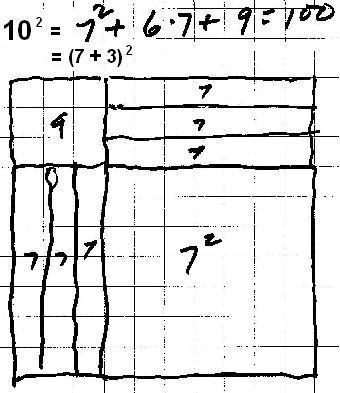 10² = 7² + 6·7 + 9 = 100
= (7 + 3)²
7
9
7
7
7 7 7
7²